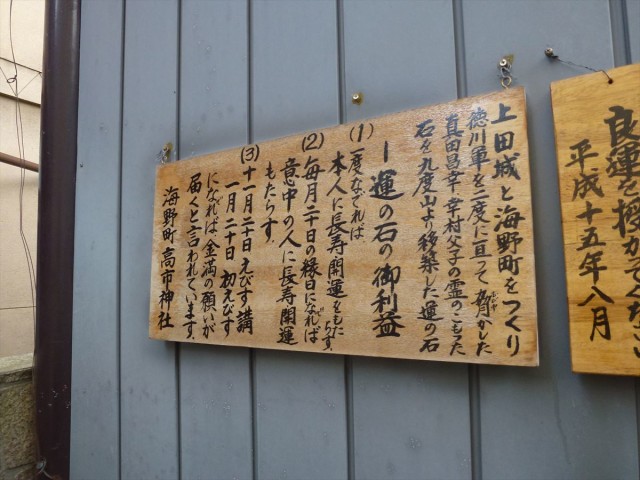 良運を授かて
平成十五年八月
上田城と海野町をつくり
徳川軍を二度に亘って脅かした
真田昌幸 幸村父子の霊のこもった
石を九度山より移築した運の石
一運の石の御利益
(1) 一度なでれば
本人に長寿開運をもたらす。
(2) 毎月二十日の縁日になれば
意中の人に長寿開運
もたらす。
(3) 十一月二十日えびす講
一月二十日 初えびす
になれば、金満の願いが
届くと言われています。
海野町高市神社